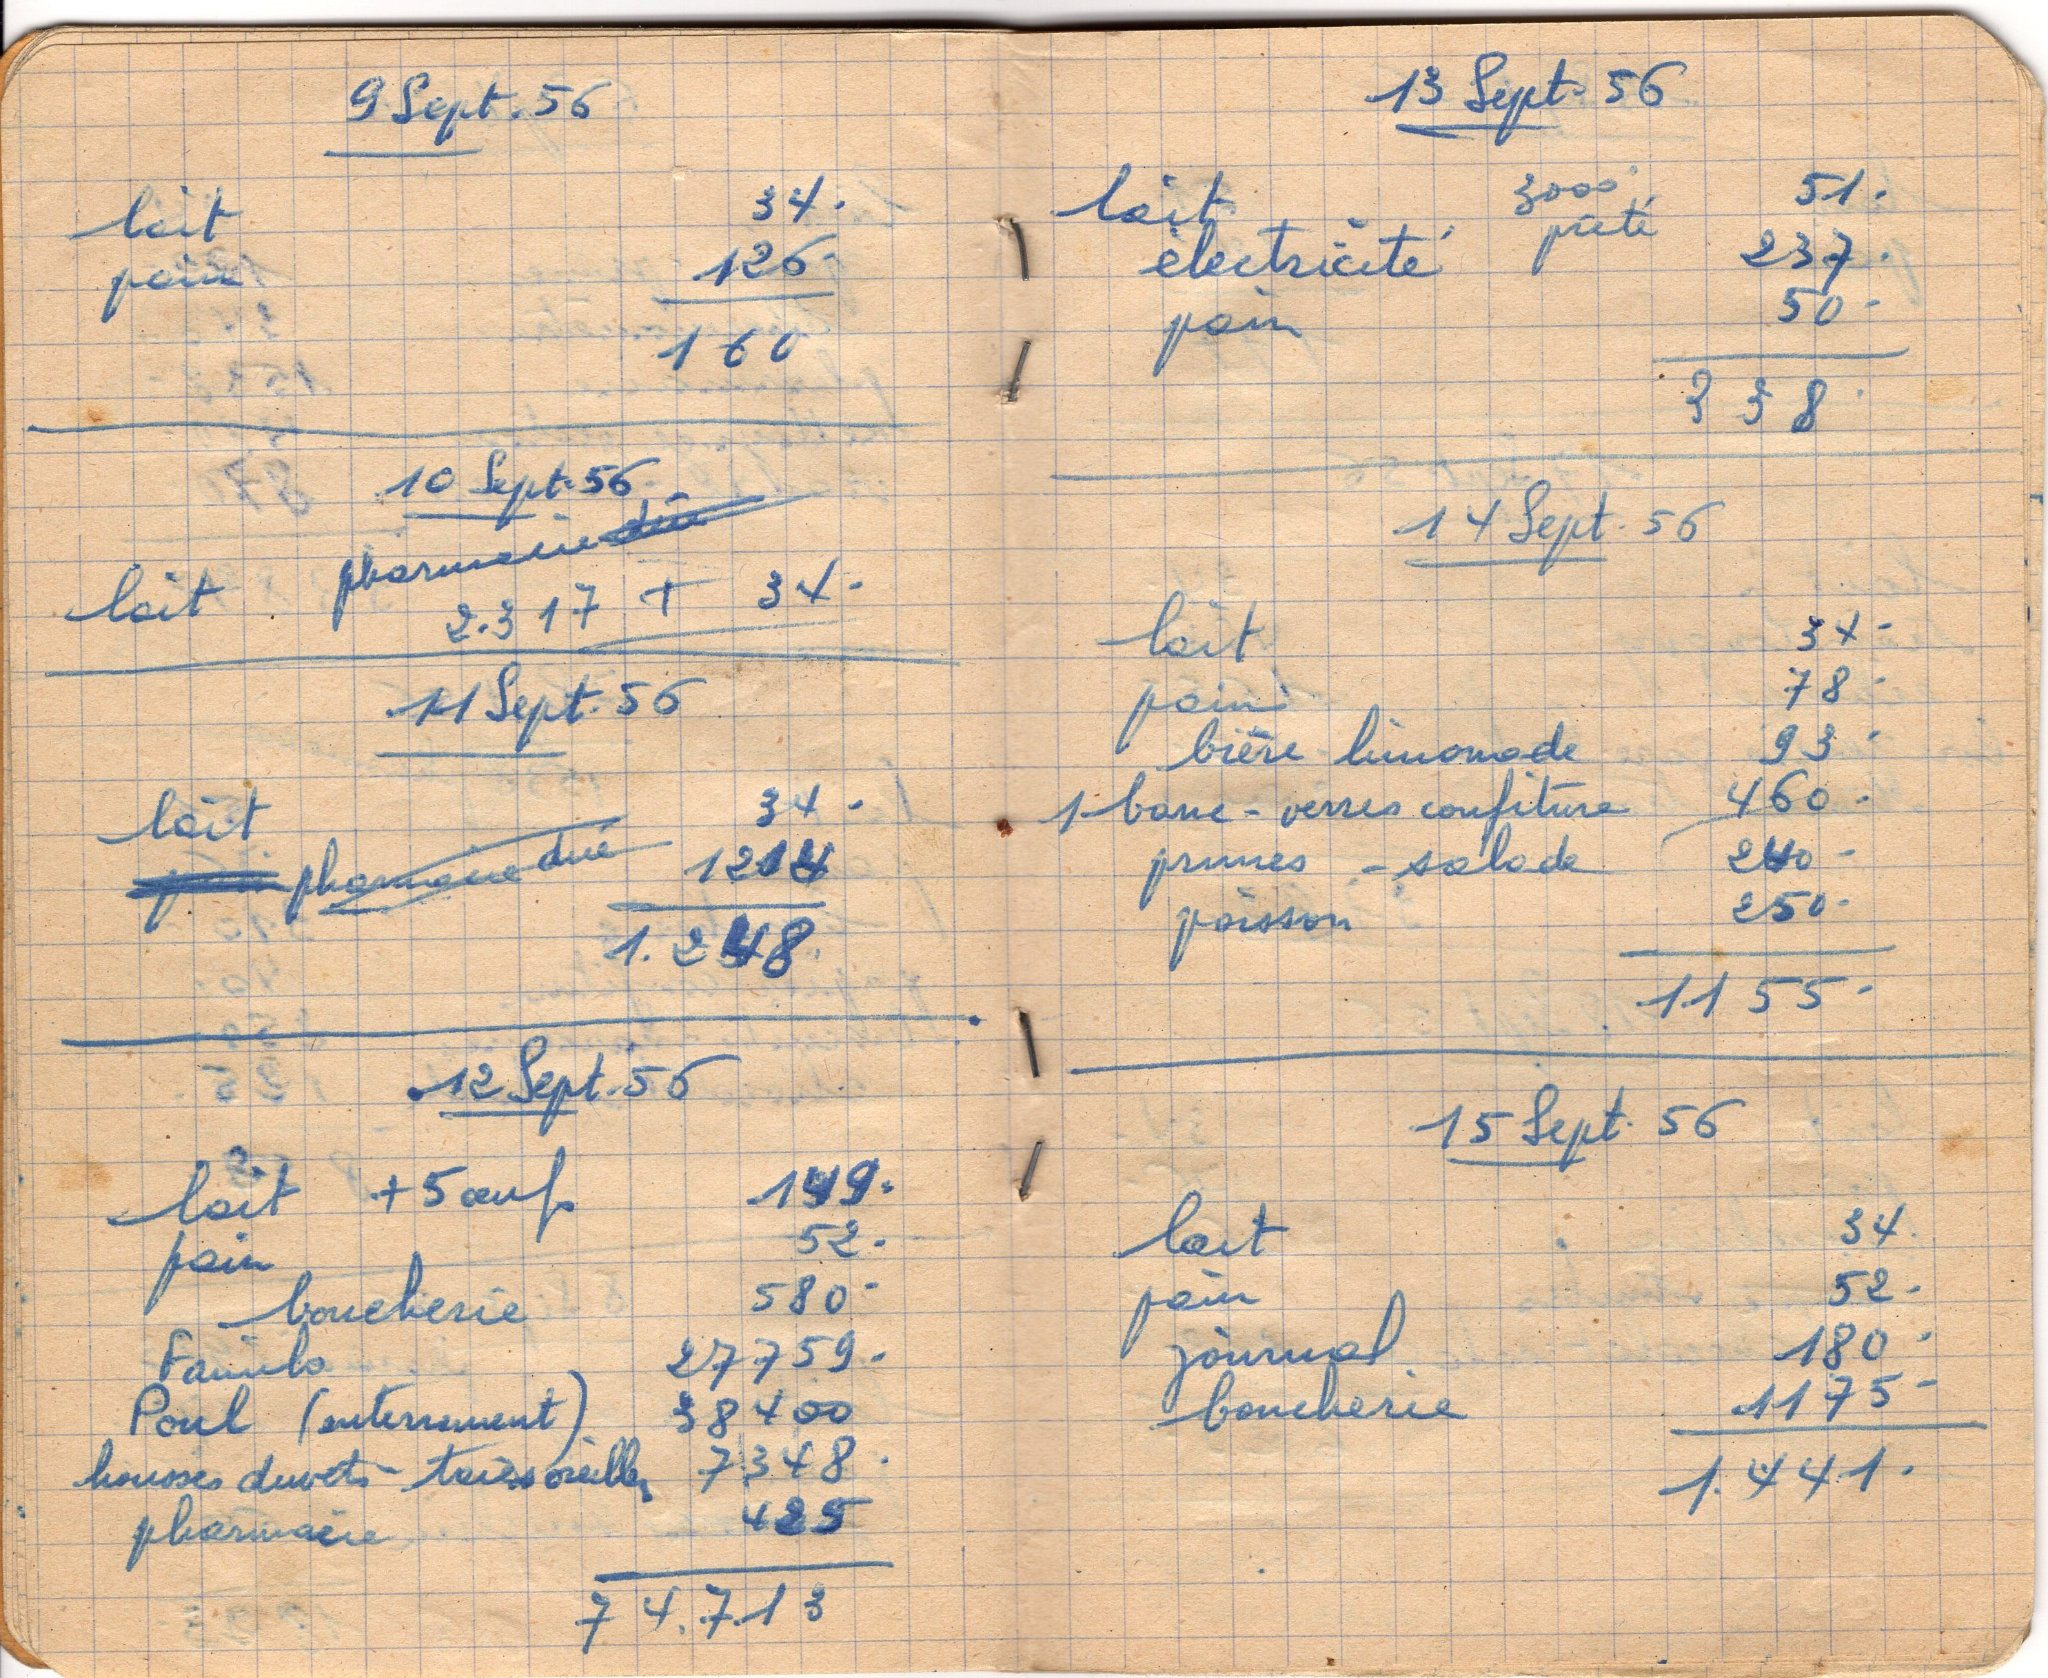 9 Sept. 56
lait 34.
pain 126.
160
10 Sept. 56
pharmacie due
lait 2.317 + 34.
11 Sept. 56
lait 34.
pharmacie due 1214
1.248
12 Sept. 56
lait + 5 œufs 149.
pain 52.
boucherie 580.
27759.
Paul (enterrement) 38400
housses duvets - taies oreillers 7348.
pharmacie 425
74.713
13 Sept. 56
lait 3000 51.
électricité prêté 237.
pain 50.
338.
14 Sept. 56
lait 34.
pain 78.
bière limonade 93.
1 - verres confiture 460.
prunes - salade 240.
poisson 250.
1155.
15 Sept. 56
lait 34.
pain 52.
journal 180.
boucherie 1175.
1.441.